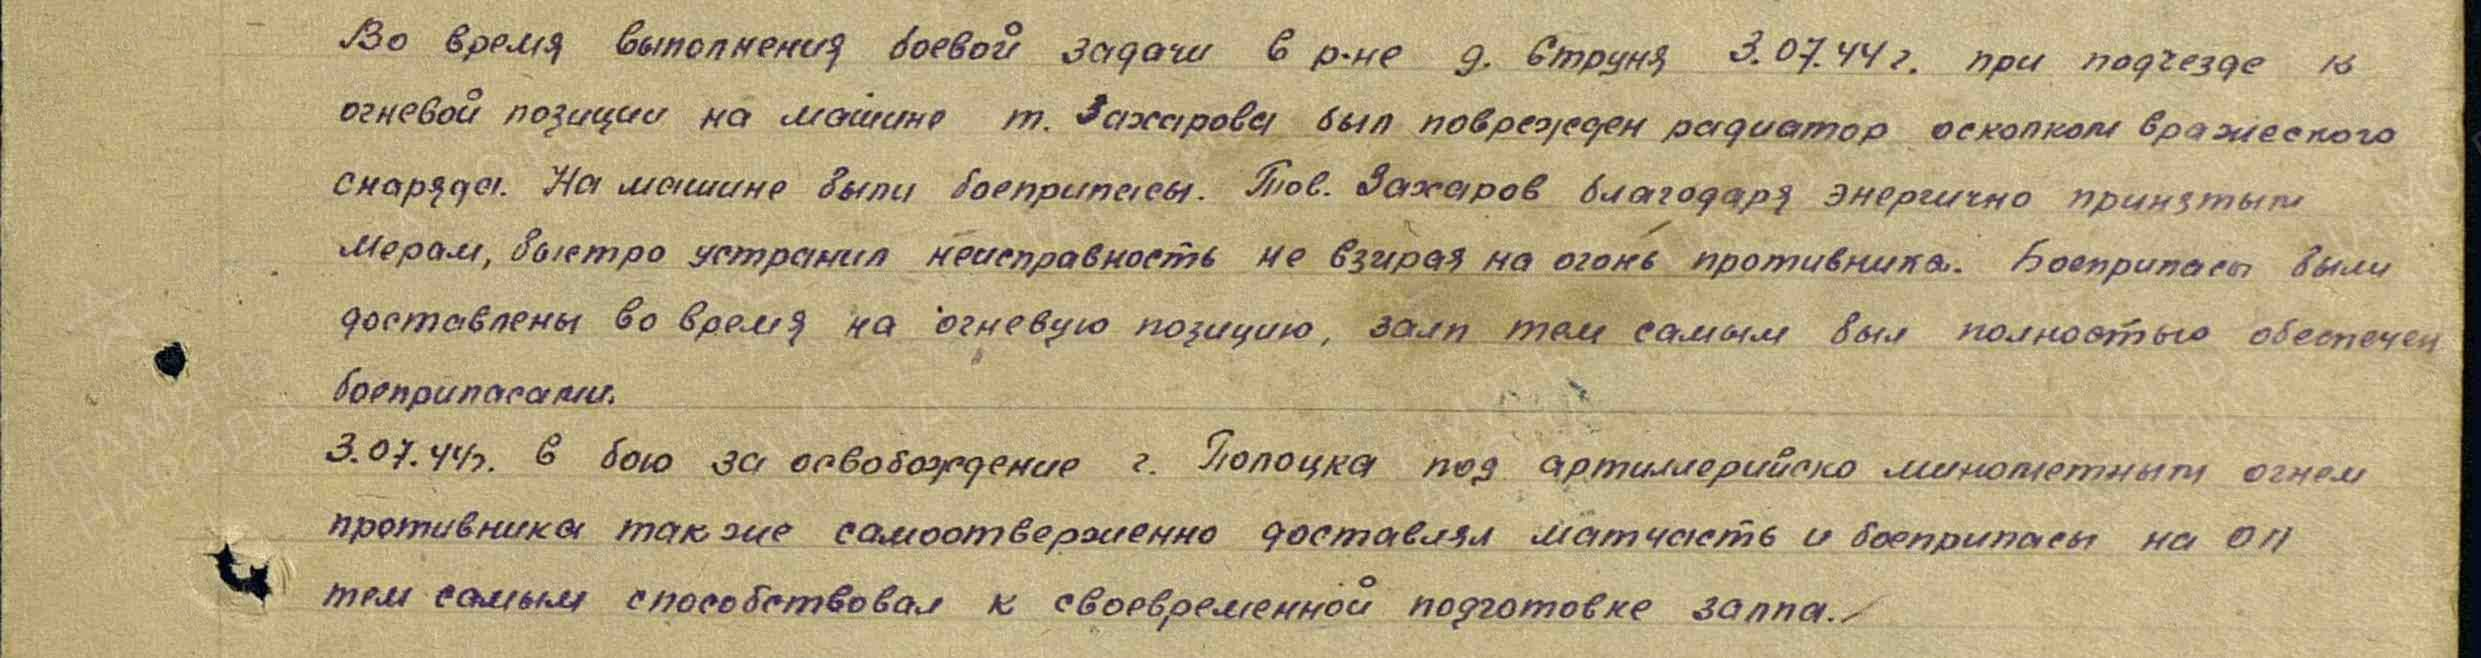 Во время выполнения боевой задачи в р-не д. Струня 3.07.44 г. при подъезде к
огневой позиции на машине т. Захарова был поврежден радиатор осколком вражеского
снаряда. На машине были боеприпасы. Тов. Захаров благодаря энергично принятым
мерам, быстро устранил неисправность не взирая на огонь противника. Боеприпасы были
доставлены во время на огневую позицию, залп тем самым был полностью обеспечен
боеприпасами.
3.07.44г. в бою за освобождение г. Полоцка под артиллерийско минометным огнем
противника так же самоотверженно доставлял матчасть и боеприпасы на ОП
тем самым способствовал к своевременной подготовке залпа.